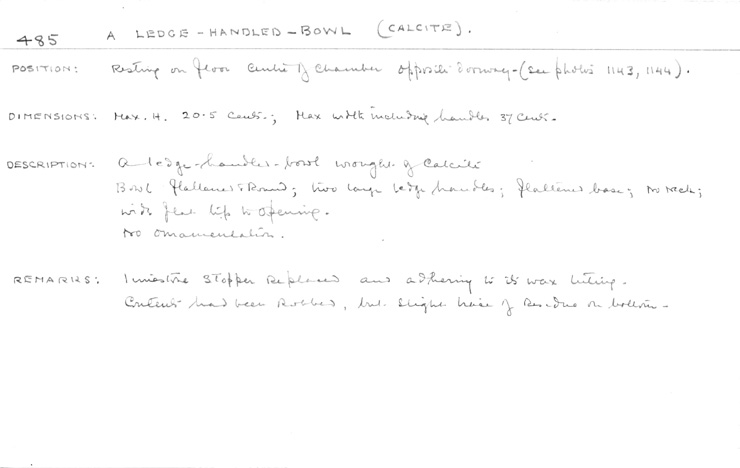 485 A LEDGE-HANDLED-BOWL (CALCITE).
POSITION: Resting on floor centre of chamber opposite doorway-(see photos 1143, 1144).
DIMENSIONS: Max. H. 20.5 cent.; Max width including handles 37 cent.
DESCRIPTION: A ledge-handled-bowl wrought of calcite
Bowl flattened & Round; two large ledge handles; flattened base; No neck;
wide flat lip to opening.
No ornamentation.
REMARKS: limestone stopper replaced and adhering to its wax luting.
Contents had been Robbed, but slight trace of Residue on bottom-